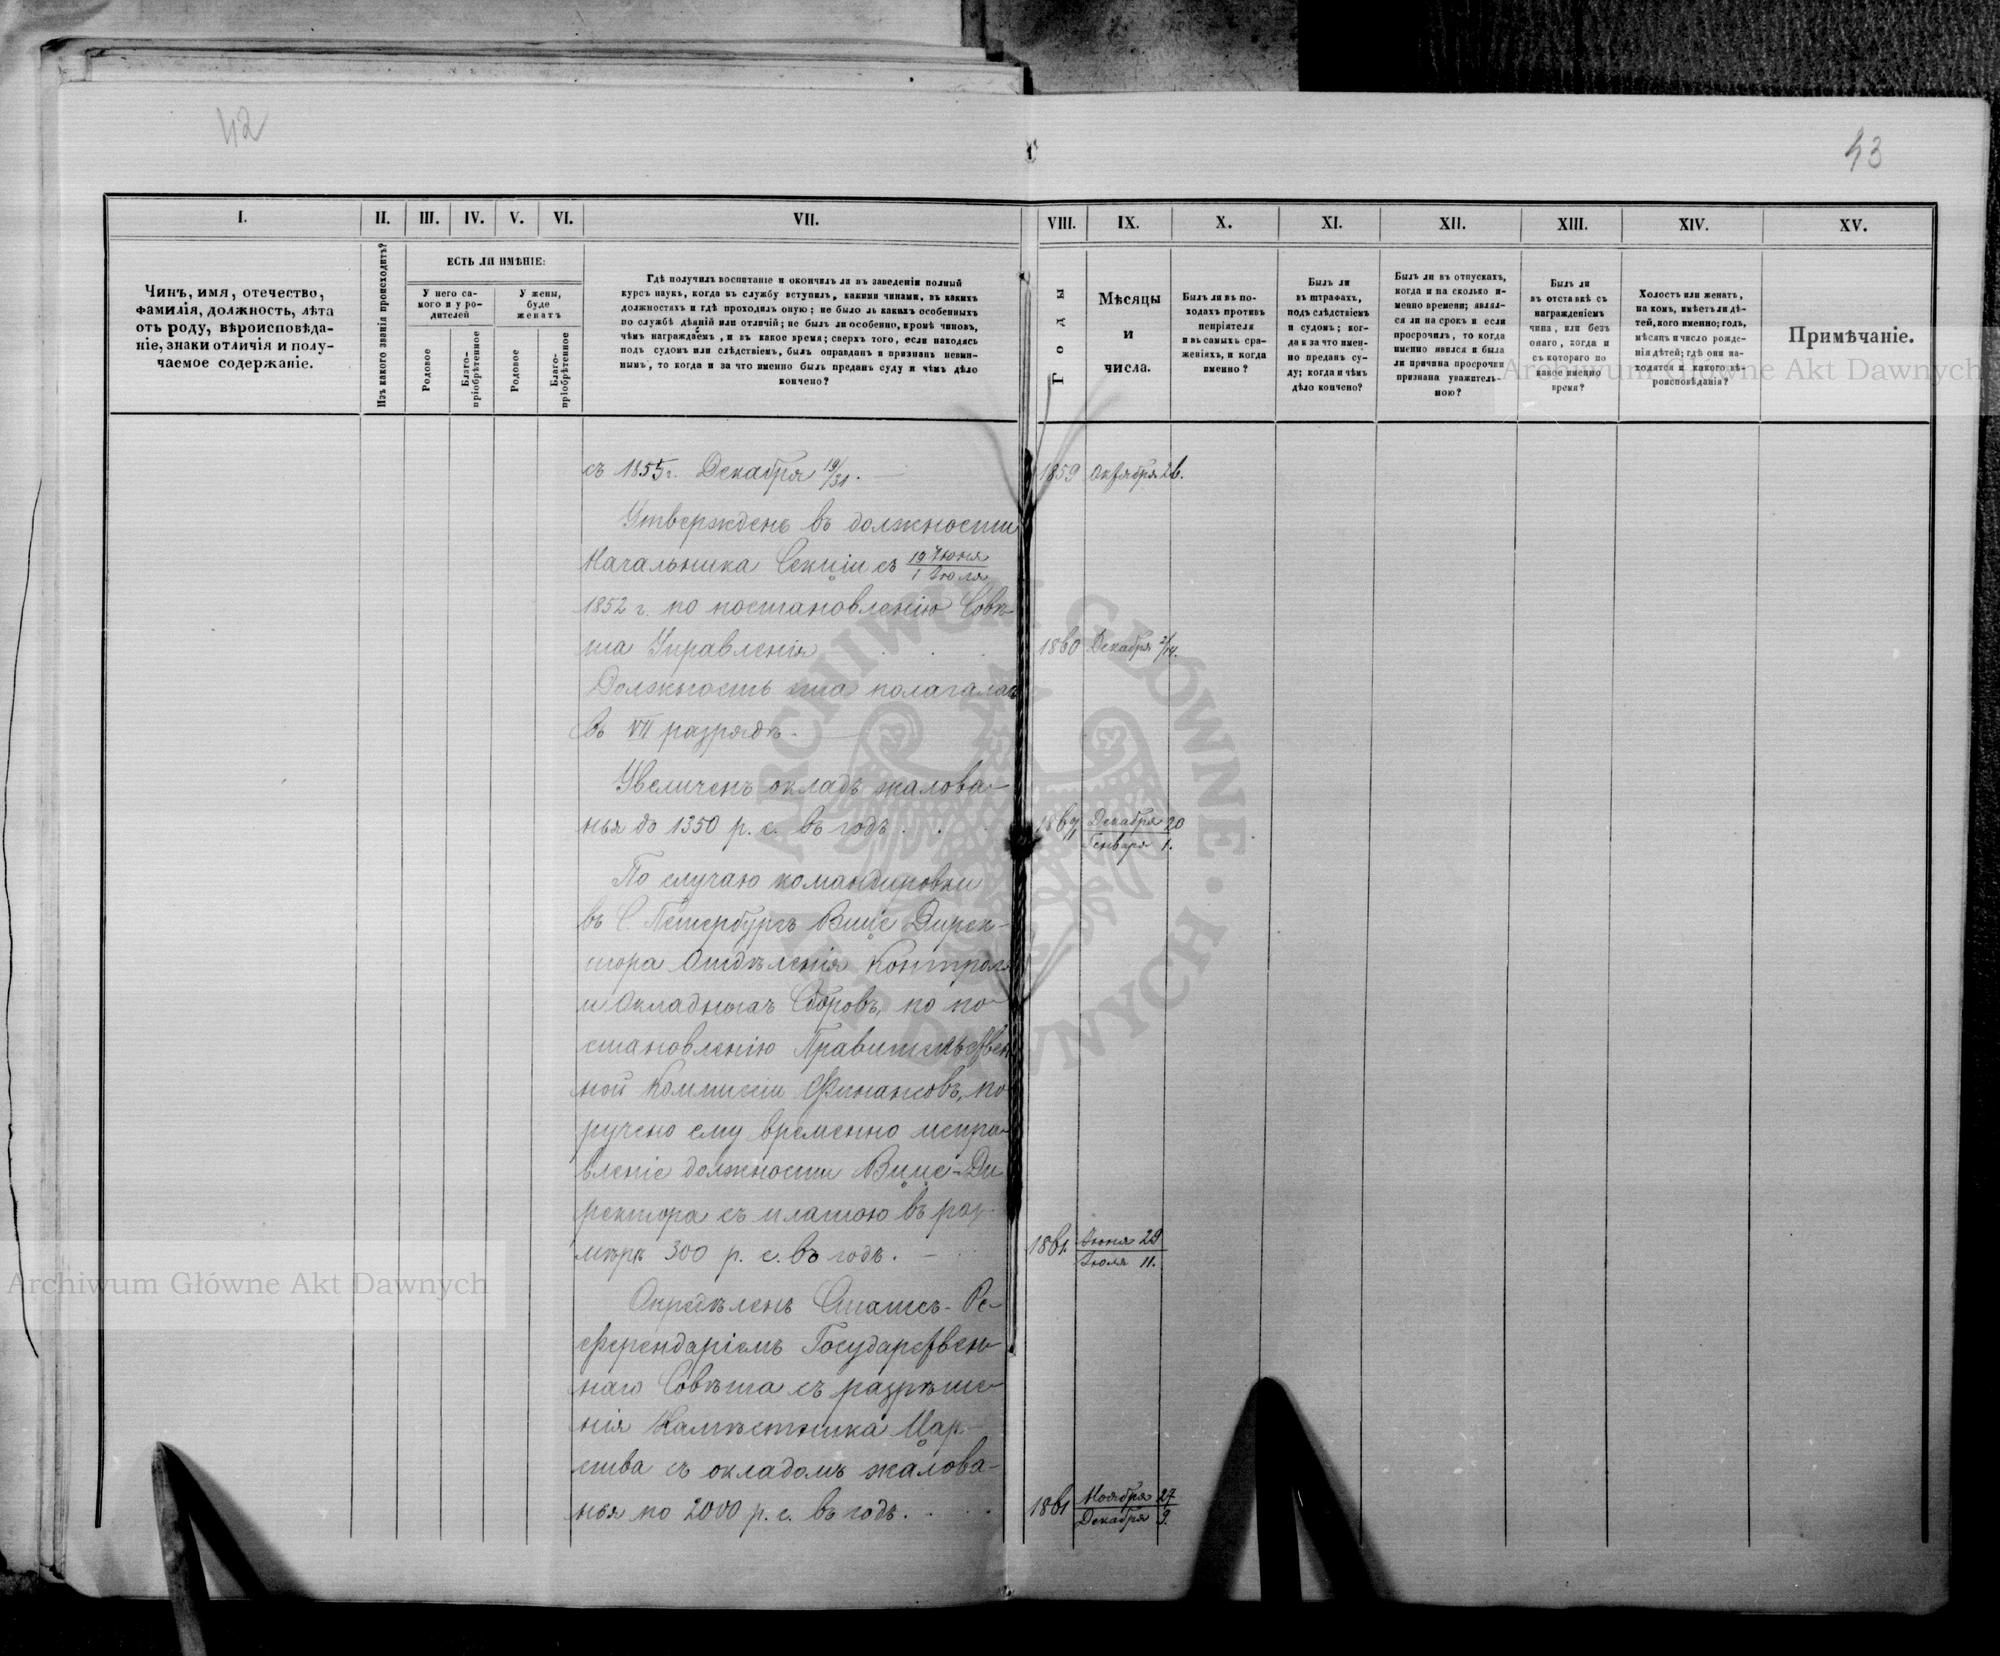 42
43
I.
II.
III.
IV.
V.
VI.
VII.
VIII.
IX.
X.
XI.
XII.
XIII.
XIV.
XV.
Чинъ, имя, отечество,
фамилія, должность, лѣта
отъ роду, вѣроисповѣда-
ніе, знаки отличія и полу-
чаемое содержаніе.
Изъ какого званія происходитъ?
ЕСТЬ ЛИ ИМѢНІЕ:
У него са-
мого и у ро-
дителей
У жены,
буде
женатъ
Родовое
Благо-
пріобрѣтенное
Родовое
Благо-
пріобрѣтенное
Гдѣ получилъ воспитаніе и окончилъ ли въ заведеніи полный
курсъ наукъ, когда въ службу вступилъ, какими чинами, въ какихъ
должностяхъ и гдѣ проходилъ оную; не было ль какихъ особенныхъ
по службѣ дѣяній или отличій; не былъ ли особенно, кромѣ чиновъ,
чѣмъ награждаемъ, и въ какое время; сверхъ того, если находясь
подъ судомъ или слѣдствіемъ, былъ оправданъ и признанъ невин-
нымъ, то когда и за что именно былъ преданъ суду и чѣмъ дѣло
кончено?
Годы
Мѣсяцы
и
числа.
Былъ ли въ по-
ходахъ противъ
непріятеля
и въ самыхъ сра-
женіяхъ, и когда
именно?
Былъ ли
въ штрафахъ,
подъ слѣдствіемъ
и судомъ; ког-
да и за что имен-
но преданъ су-
ду; когда и чѣмъ
дѣло кончено?
Былъ ли въ отпускахъ,
когда и на сколько и-
менно времени; являл-
ся ли на срокъ и если
просрочилъ, то когда
именно явился и была
ли причина просрочки
признана уважитель-
ною?
Былъ ли
въ отставкѣ съ
награжденіемъ
чина, или безъ
онаго, когда и
съ котораго по
какое именно
время?
Холостъ или женатъ,
на комъ, имѣетъ ли дѣ-
тей, кого именно; годъ,
мѣсяцъ и число рожде-
нія дѣтей; гдѣ они на-
ходятся и какого вѣ-
роисповѣданія?
Примѣчаніе.
съ 1855 г. Декабря 19/31.
1859 Октября 26.
Утвержденъ въ должности
Начальника Секціи съ 19 Іюня
1 Іюля
1852 г. по постановленію Совѣ-
та Управленія
1860 Декабря 2/14.
Должность эта полагалась
въ VII разрядѣ.
Увеличенъ окладъ жалова-
нья до 1350 р. с. въ годъ.
Декабря 20
Генваря 1.
По случаю командировки
въ С. Петербургъ Вице Дирек-
тора Отдѣленія Контроля
и Окладныхъ Сборовъ, по по-
становленію Правительствен-
ной Коммисіи Финансовъ, по-
ручено ему временно испра-
вленіе должности Вице-Ди
ректора съ платою въ раз-
мѣрѣ 300 р. с. въ годъ.
1861. Іюня 29
Іюля 11.
Опредѣленъ Статсъ-Ре-
ферендаріемъ Государствен-
наго Совѣта съ разрѣше-
нія Намѣстника Цар-
ства съ окладомъ жалова-
нья по 2000 р. с. въ годъ.
1861 Ноября 27
Декабря 9.
Archiwum Główne Akt Dawnych
Archiwum Główne Akt Dawnych
ARCHIWUM GŁÓWNE AKT DAWNYCH